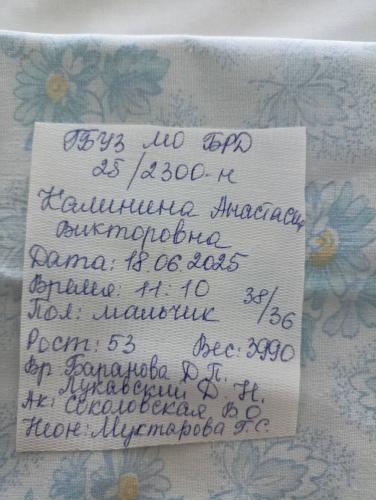 ГБУЗ МО БРД
25/2300-н
Калинина Анастасия
Викторовна
Дата: 18.06.2025
Время: 11:10 38/36
Пол: мальчик
Рост: 53 Вес: 3990
Вр Баранова Д.П.
Лукавский Д. Н.
Ак: Соколовская В.О
Неон: Мухтарова Г.С.